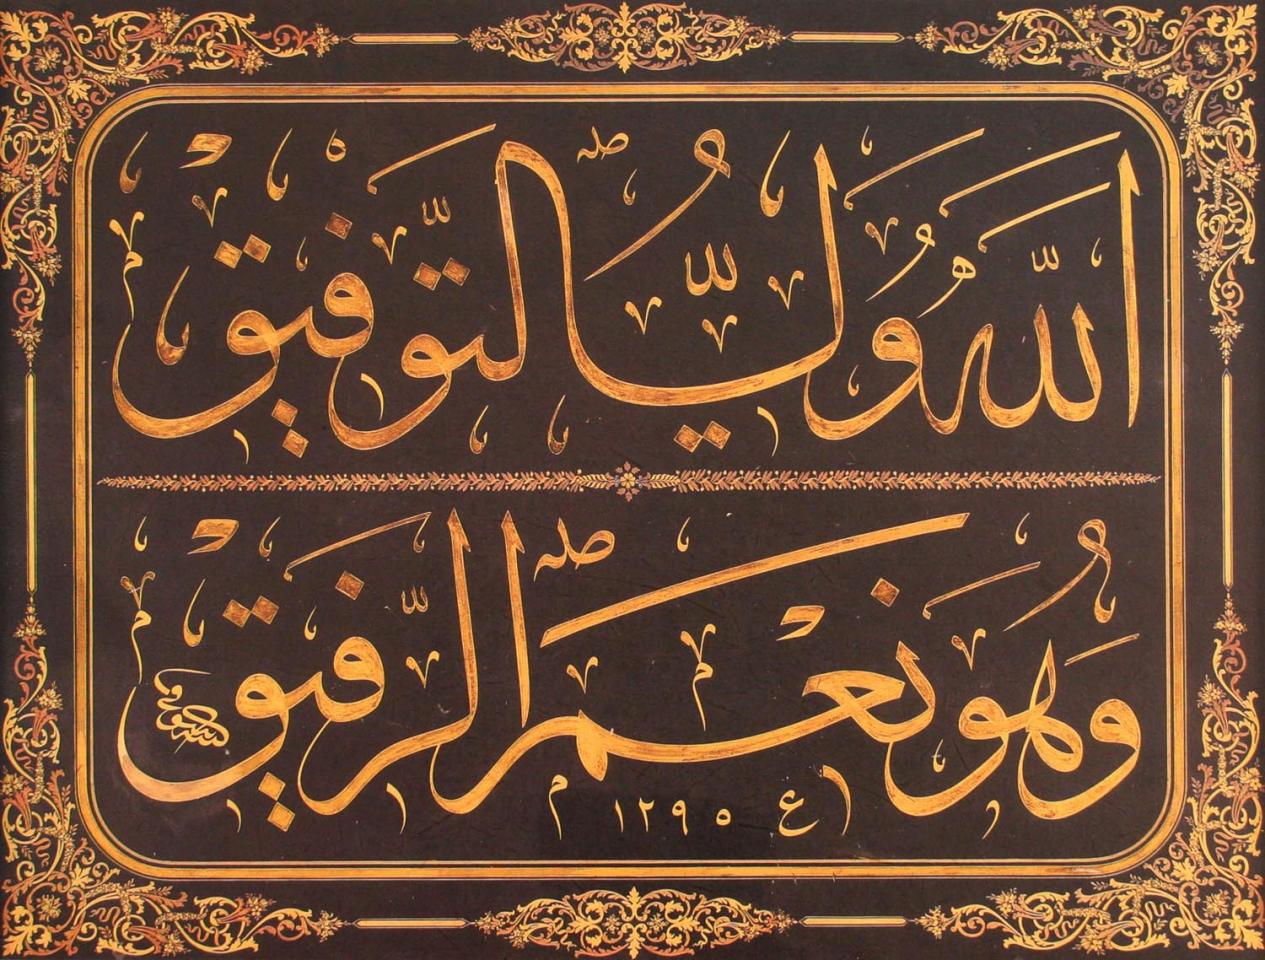 اللّٰهُ وَلِيُّ التَّوْفِيقِ
وَهُوَ نِعْمَ الرَّفِيقِ
١٢٩٥